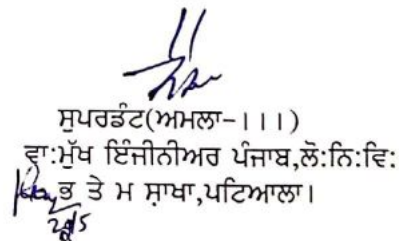 ਸੁਪਰਡੰਟ(ਅਮਲਾ-।।।)
ਵਾ:ਮੁੱਖ ਇੰਜੀਨੀਅਰ ਪੰਜਾਬ,ਲੋ:ਨਿ:ਵਿ:
ਭ ਤੇ ਮ ਸ਼ਾਖਾ,ਪਟਿਆਲਾ।